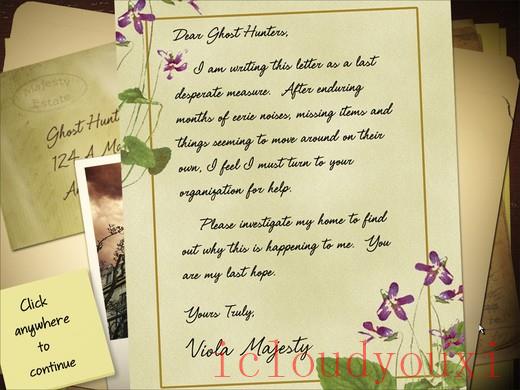 Majesty
Estate
Ghost Hunt
124 A Ma
Dear Ghost Hunters,
I am writing this letter as a last
desperate measure. After enduring
months of eerie noises, missing items and
things seeming to move around on their
own, I feel I must turn to your
organization for help.
Please investigate my home to find
out why this is happening to me. You
are my last hope.
Yours Truly,
Viola Majesty
Click
anywhere
to
continue
icloudyouxi